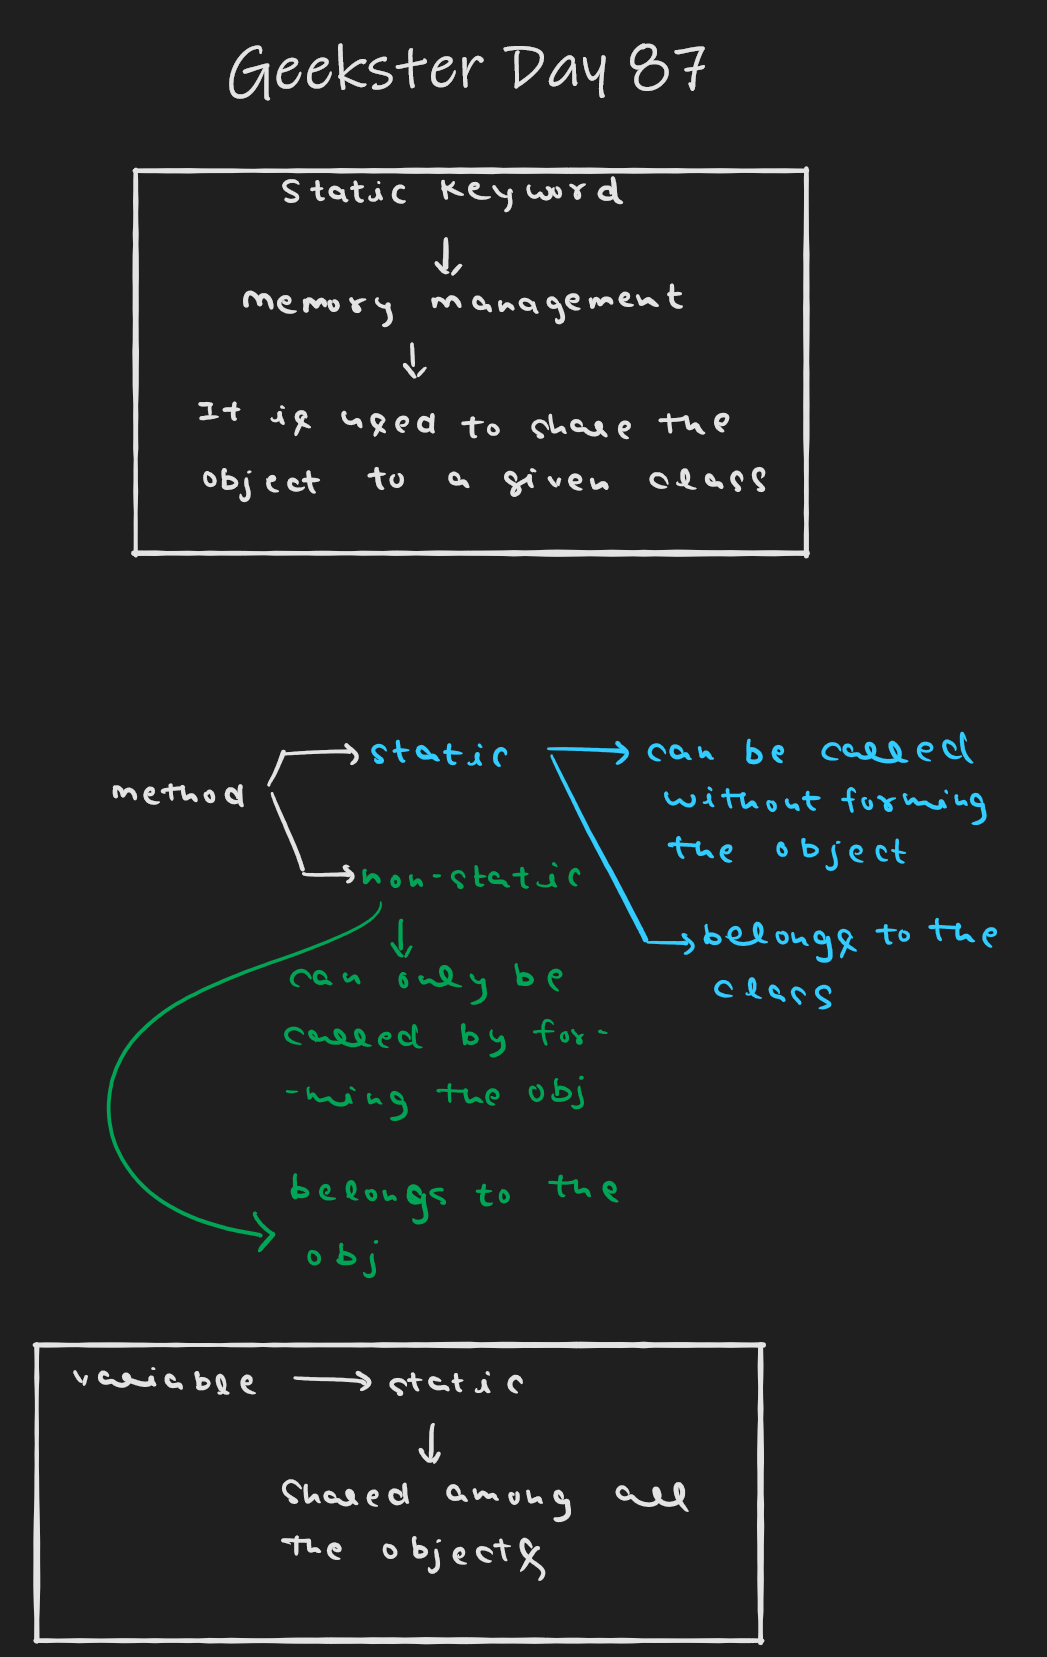 Geekster Day 87
Static Keyword
memory management
It is used to share the
object to a given class
method
static
can be called
without forming
the object
belongs to the
class
non-static
can only be
called by for-
-ming the obj
belongs to the
obj
variable
static
Shared among all
the objects